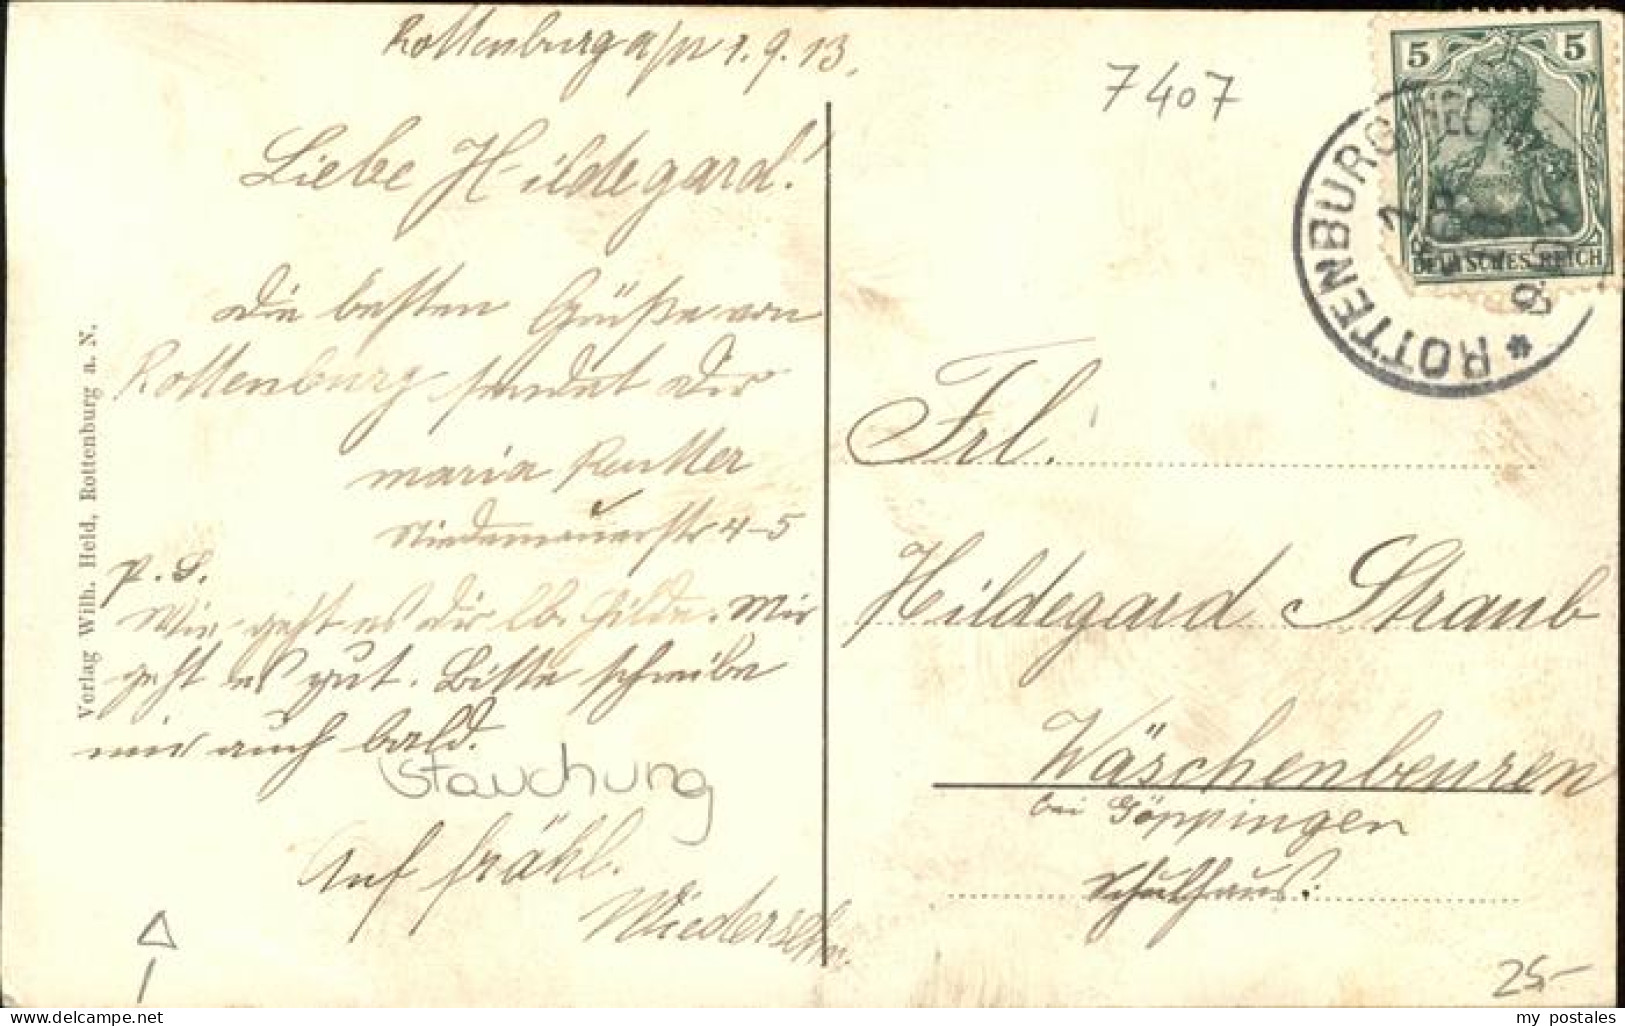 Rottenburg a/N 1.9.13.
Liebe Hildegard!
Die besten Grüße von
Rottenburg sendet Dir
Maria Reutter
Niedemauerstr 4-5
P. S.
Wie geht es Dir lb. Hilde. Mir
geht es gut. Bitte schreibe
mir auch bald.
Stauchung
Auf fröhl.
Wiedersehn.
Verlag Wilh. Held, Rottenburg a. N.
7407
5 5
DEUTSCHES REICH
* ROTTENBURG
Frl.
Hildegard Straub
Wäschenbeuren
bei Göppingen
Schulhaus.
25.-
www.delcampe.net
my postales